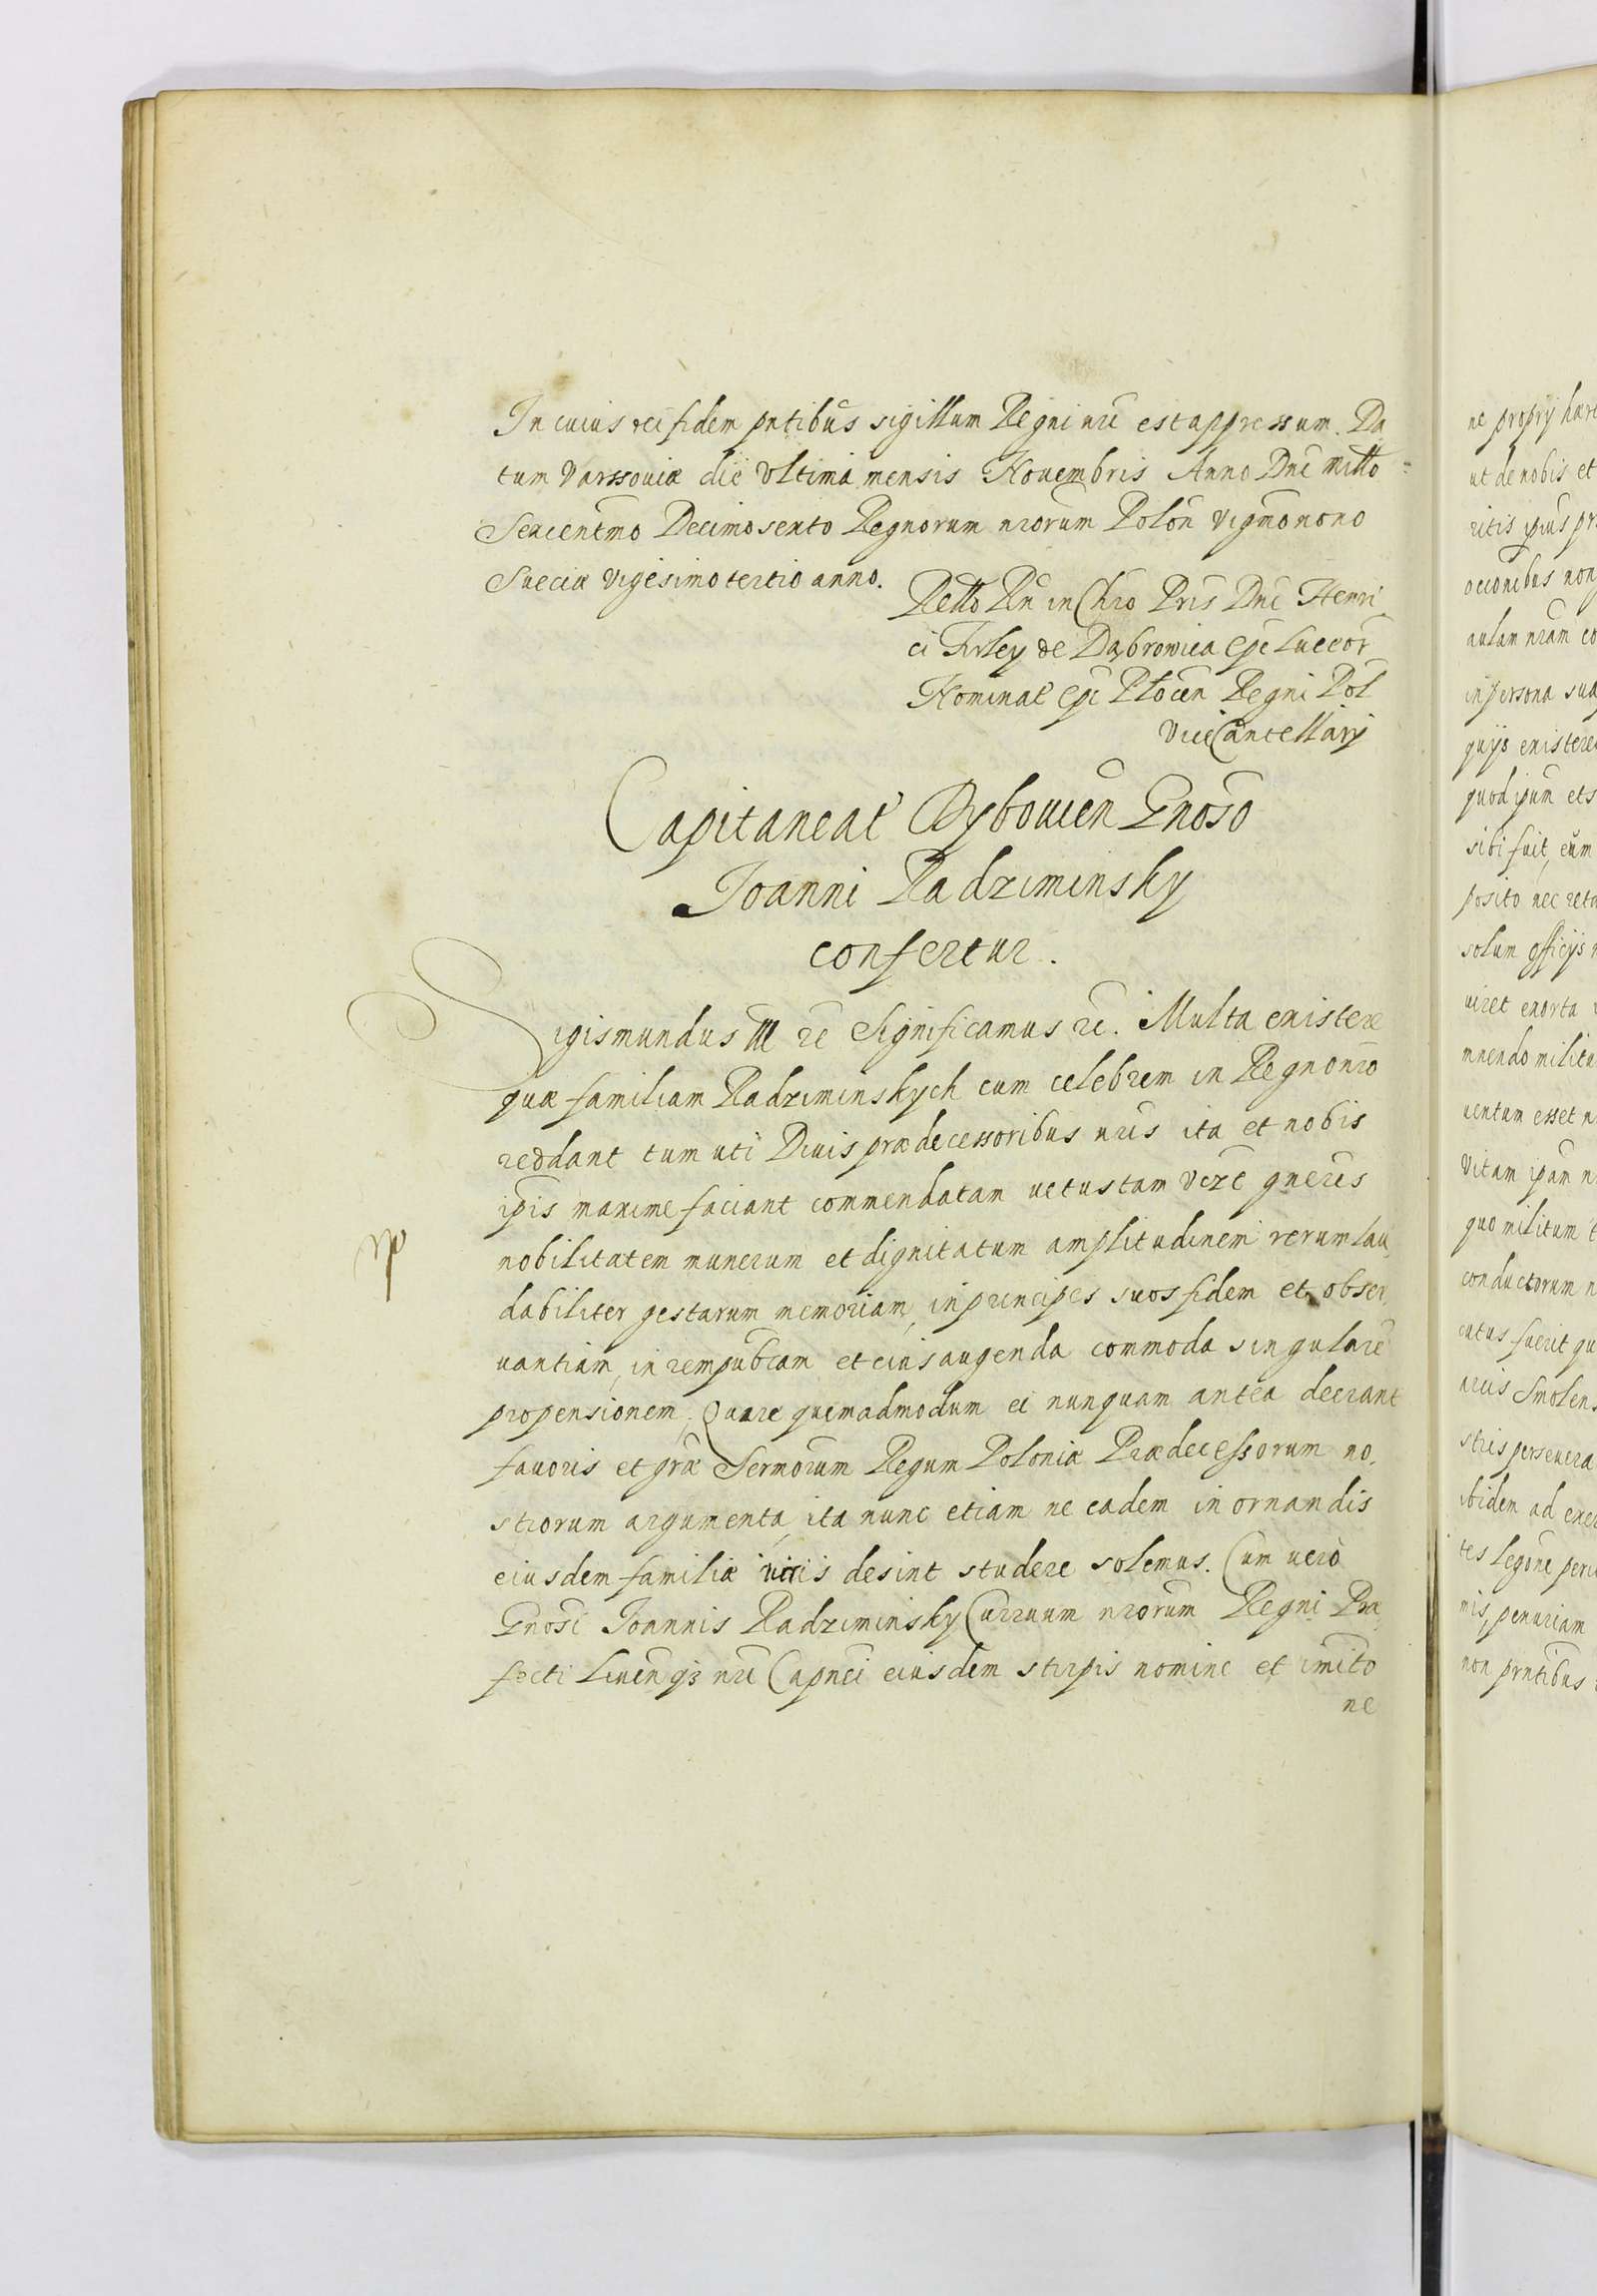 In cuius rei fidem pntibus sigillum Regni nri est appressum. Da
tum Varssouiæ die Vltima mensis Nouembris Anno Dni Millo
Sexcentmo Decimosexto Regnorum nrorum Polon Vigmonono
Sueciæ Vigesimotertio anno.
Rello Rn in Chro Pris Dni Henri
ci Firley de Dąbrowica Epi Luceor
Nominat Epi Plocen Regni Pol
ViceCancellarij
Capitaneat Dybouien Gnoso
Joanni Radziminsky
confertur.
Sigismundus III rc Significamus rc. Multa existere
quæ familiam Radziminskych cum celebrem in Regno nro
reddant tum uti Diuis prædecessoribus nris ita et nobis
ipis maxime faciant commendatam uetustam Vere gneris
nobilitatem munerum et dignitatum amplitudinem rerum lau
dabiliter gestarum memoriam, in principes suos fidem et obser
uantiam, in rempubcam et eius augenda commoda singulare
propensionem. Quare quemadmodum ei nunquam antea deerant
fauoris et græ Sermorum Regum Poloniæ Prædecessorum no,
strorum argumenta, ita nunc etiam ne eadem in ornandis
eiusdem familiæ uiris desint studere solemus. Cum uerò
Gnosi Joannis Radziminsky Curruum nrorum Regni Præ
fecti Liuen qz nri Capnei eiusdem stirpis nomine et imito
ne
ne proprij hære
ut de nobis et
ritis ipius pr
occionibus non
aulam nram co
in persona sua
quijs existere
quod ipum ets
sibi fuit, eum
posito nec reta
solum officijs n
uiret exorta
mnendo militu
uentum esset n
Vitam ipam n
quo militum t
conductorum n
cutus fuerit qu
arcis Smolens
stris perseuera
ibidem ad exer
tes legone peri
nis, penuriam
non prntibus